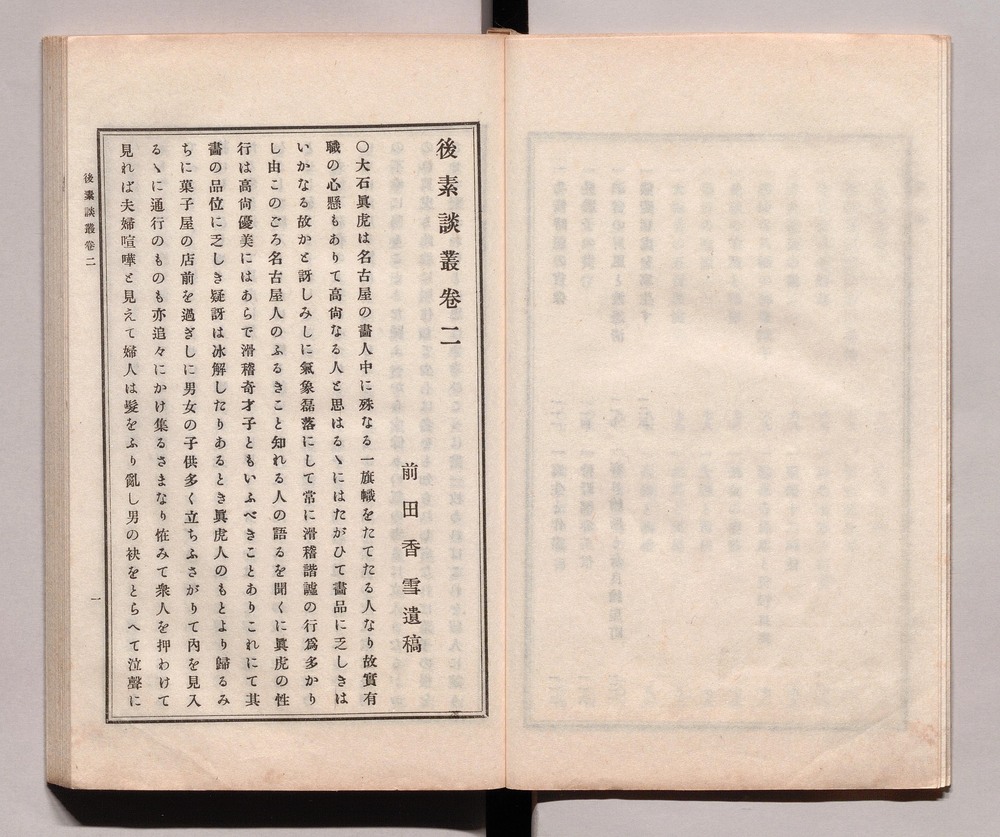 後素談叢卷二
前田香雪遺稿
〇大石眞虎は名古屋の畵人中に殊なる一旗幟をたてたる人なり故實有
職の心懸もありて高尙なる人と思はるゝにはたがひて畵品に乏しきは
いかなる故かと訝しみしに氣象磊落にして常に滑稽諧謔の行爲多かり
し由このごろ名古屋人のふるきこと知れる人の語るを聞くに眞虎の性
行は高尙優美にはあらで滑稽奇才子ともいふべきことありこれにて其
畵の品位に乏しき疑訝は冰解したりあるとき眞虎人のもとより歸るみ
ちに菓子屋の店前を過ぎしに男女の子供多く立ちふさがりて內を見入
るゝに通行のものも亦追々にかけ集るさまなり恠みて衆人を押わけて
見れば夫婦喧嘩と見えて婦人は髮をふり亂し男の袂をとらへて泣聲に
後素談叢卷二
一